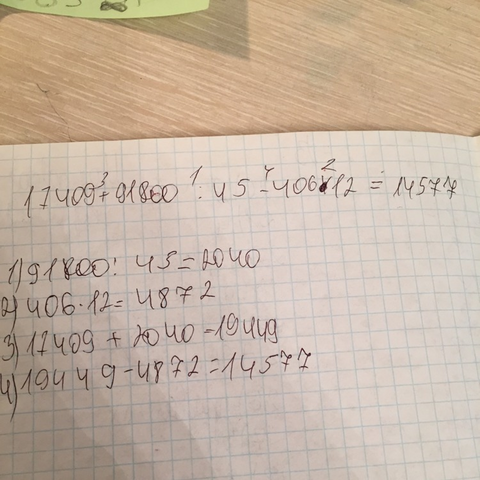 17409 + 91800 : 45 - 406 · 12 = 14577
3 1 4 2
1) 91800 : 45 = 2040
2) 406 · 12 = 4872
3) 17409 + 2040 = 19449
4) 19449 - 4872 = 14577